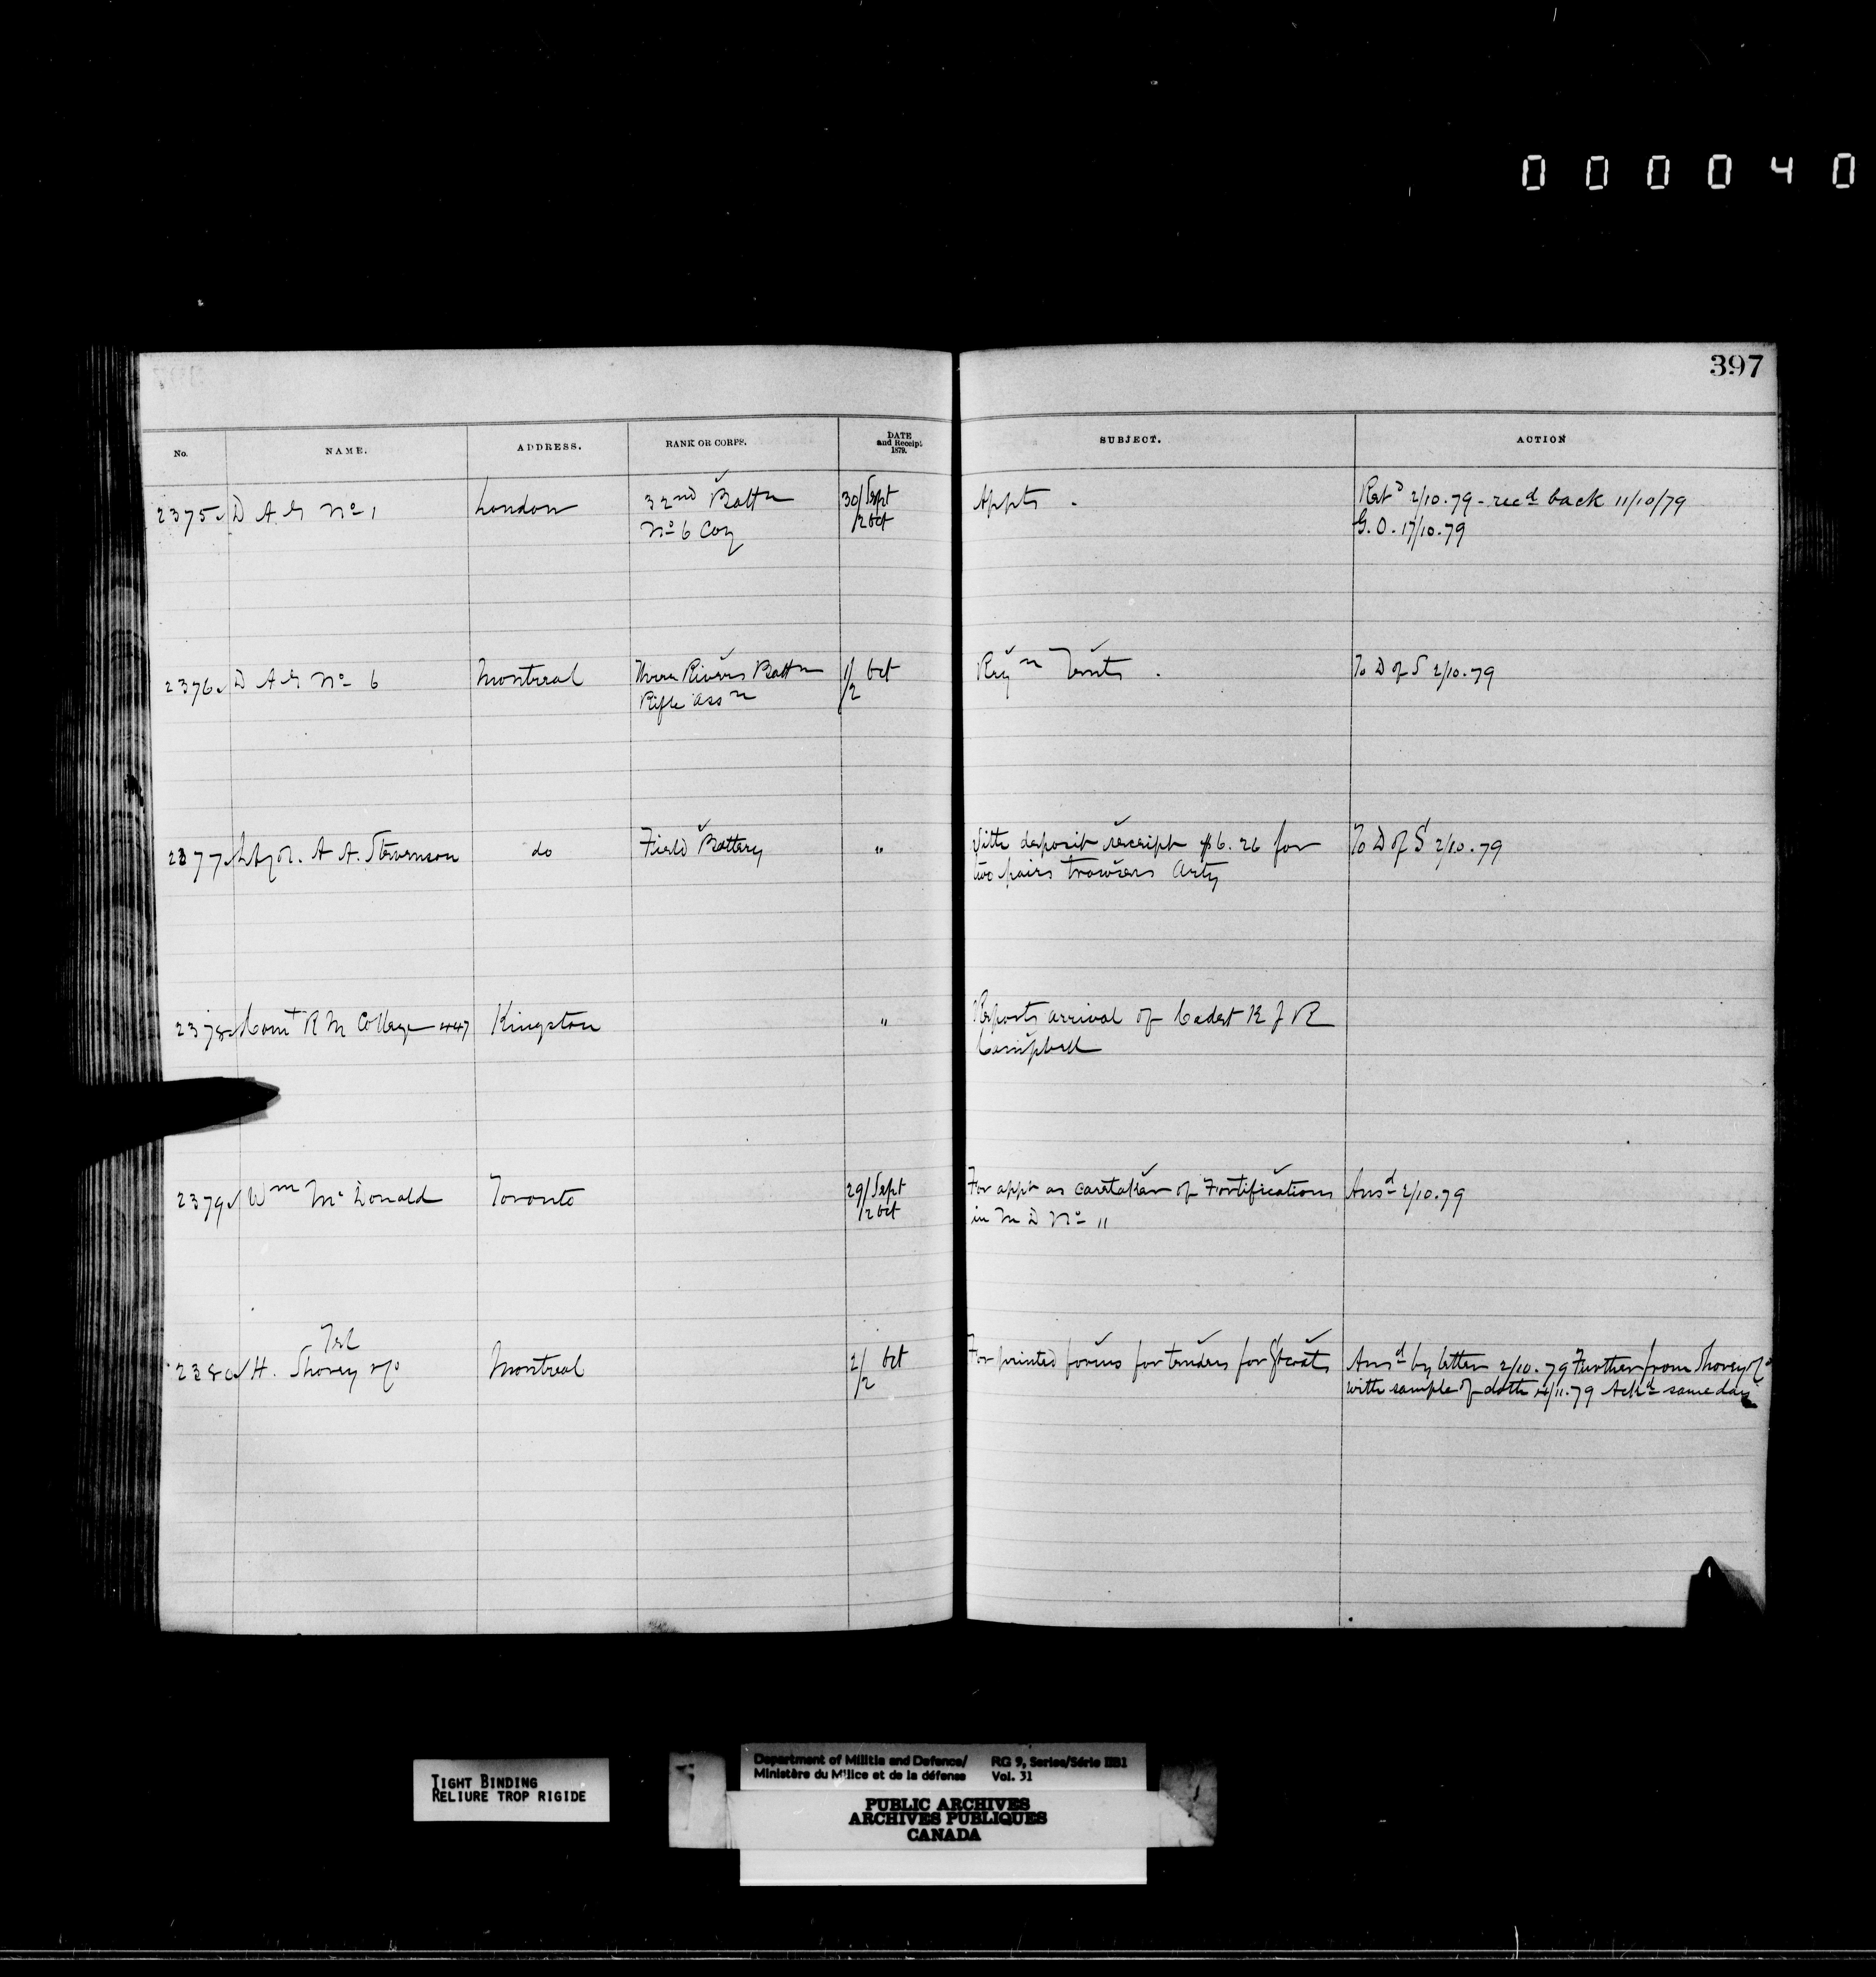 000040
397
No. NAME. ADDRESS. RANK OR CORPS. DATE and Receipt 1879. SUBJECT. ACTION
2375 D A G No 1 London 32nd Battn 30/Sept Appts. Retd 2/10.79 - recd back 11/10/79
No 6 Coy /2 Oct G.O. 17/10.79
2376 D A G No 6 Montreal Three Rivers Battn 1/ Oct Reqn Tents. To D of S 2/10.79
Rifle Assn /2
2377 A A. Stevenson do Field Battery " deposit receipt $6.26 for To D of S 2/10.79
two pairs trowsers Arty
2378 Comt R M College 447 Kingston " Reports arrival of Cadet K J R
Campbell
2379 Wm McDonald Toronto 29/Sept For appt as caretaker of Fortifications Ansd 2/10.79
/2 Oct in M D No 11
Tel
2380 H. Shorey & Co Montreal 2/ Oct For printed forms for tenders for Gtcoats Ansd by letter 2/10.79 Further from Shorey & Co
/2 with sample of cloth 14/11.79 Ackd same day
TIGHT BINDING
RELIURE TROP RIGIDE
Department of Militia and Defence/ RG 9, Series/Série IIB1
Ministère du Milice et de la défense Vol. 31
PUBLIC ARCHIVES
ARCHIVES PUBLIQUES
CANADA